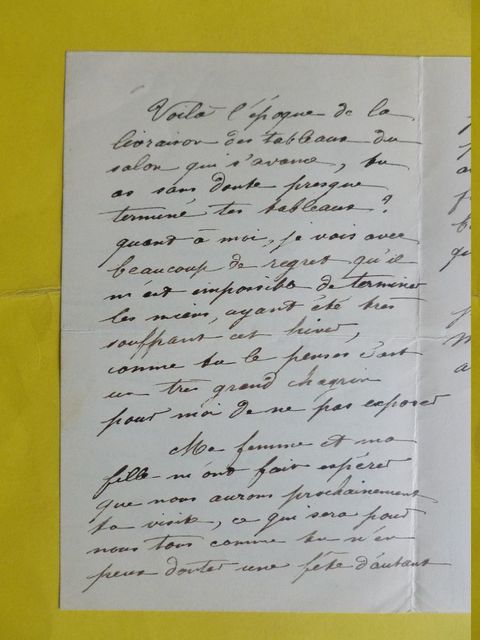 Voilà l'époque de la
livraison des tableaux du
salon qui s'avance, tu
as sans doute presque
terminé tes tableaux?
quant à moi, je vois avec
beaucoup de regret qu'il
m'est impossible de terminer
les miens, ayant été très
souffrant cet hiver,
comme tu le penses c'est
un très grand chagrin
pour moi de ne pas exposer
Ma femme et ma
fille m'ont fait espérer
que nous aurons prochainement
ta visite, ce qui sera pour
nous tous comme tu n'en
peux douter une fête d'autant